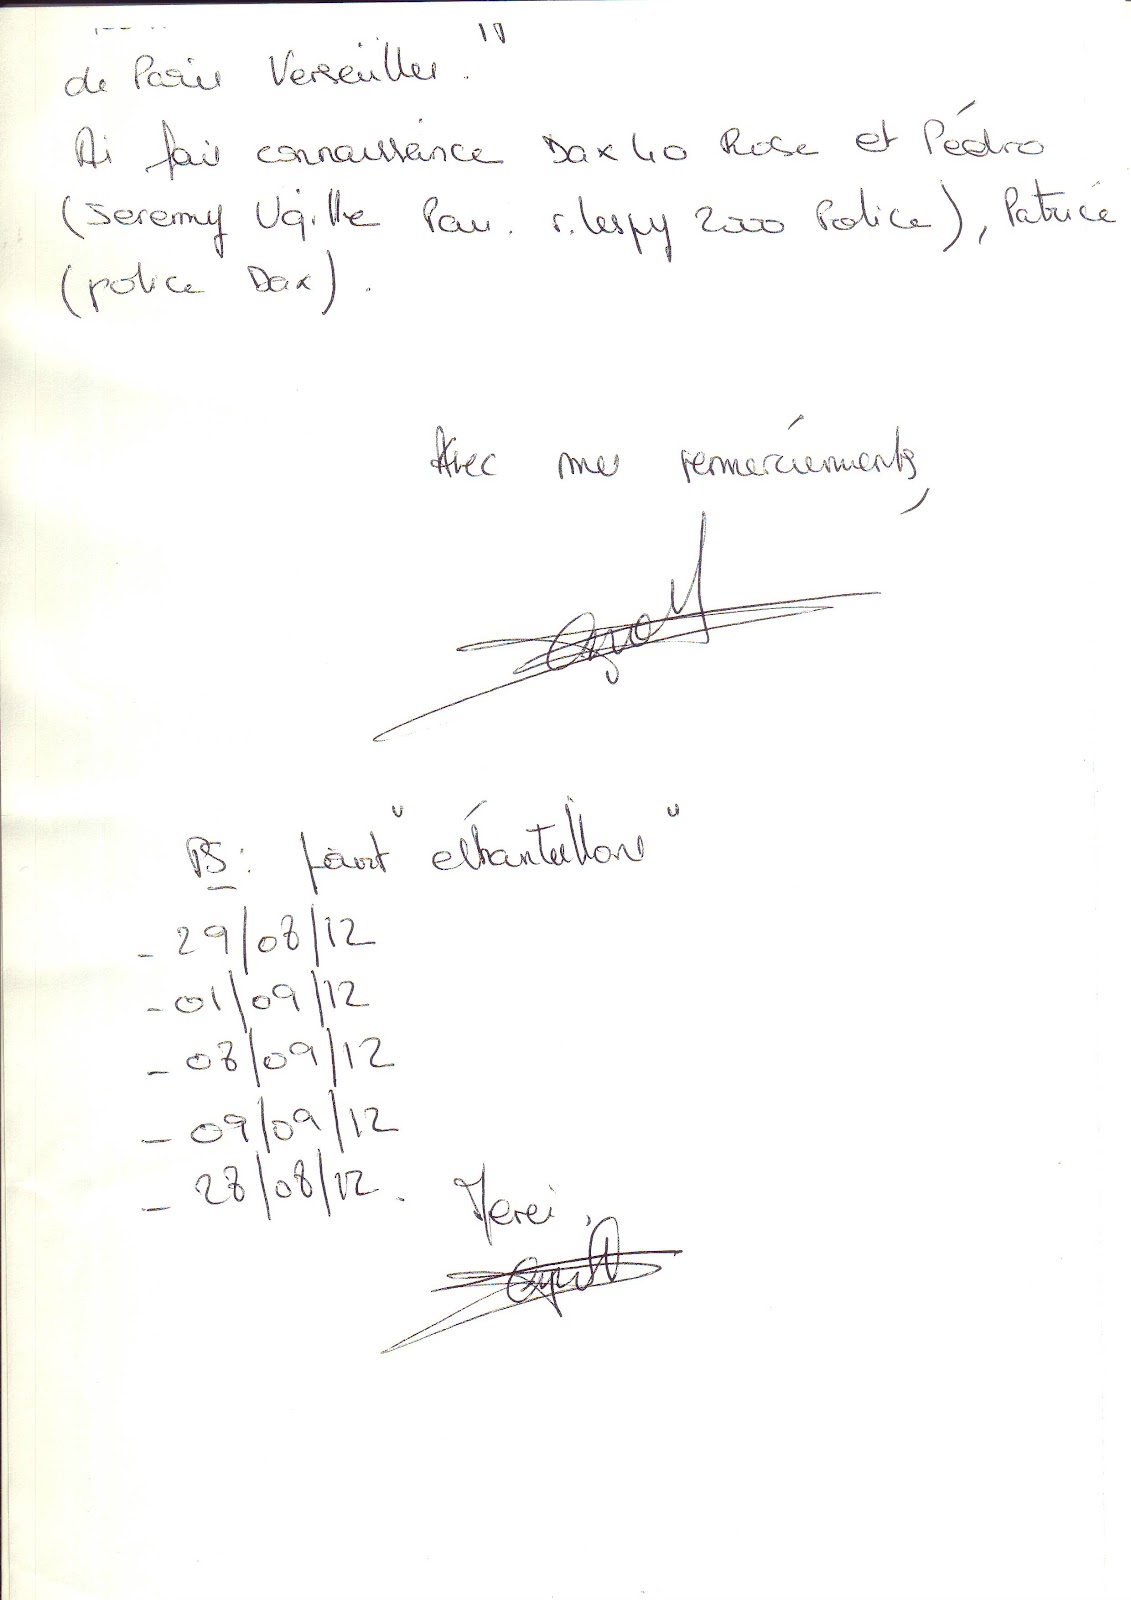 de Paris Verseilles."
Ai fais connaissance Dax 40 Rose et Pédro
(Jeremy Ugille Pau. r. lespy 2000 Police), Patrice
(police Dax).
Avec mes remerciements,
PS: joint "echantillons"
- 29/08/12
- 01/09/12
- 08/09/12
- 09/09/12
- 28/08/12. Merci,